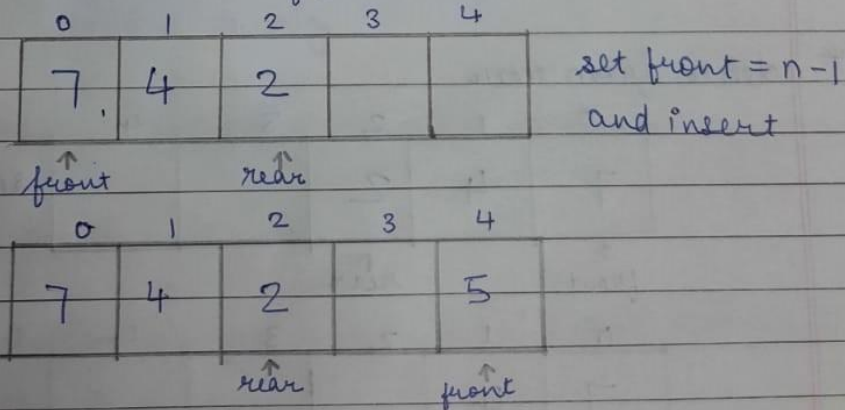 0 1 2 3 4
7 4 2
set front = n-1
and insert
front rear
0 1 2 3 4
7 4 2 5
rear front